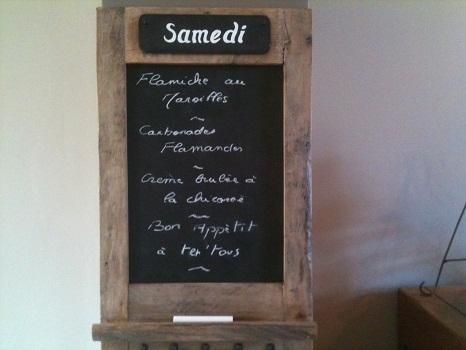 Samedi
Flamiche au
Maroilles
Carbonades
Flamandes
Creme brulée à
la chicorée
Bon Appétit
à ter'tous